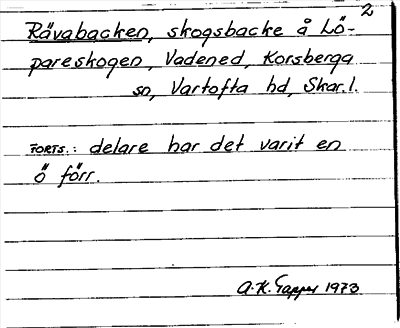 2
Rävabacken, skogsbacke å Lö-
pareskogen, Vadened, Korsberga
sn, Vartofta hd, Skar.l.
FORTS.: delare har det varit en
ö förr.
A.K. Tapper 1973